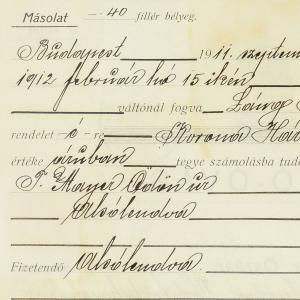 Másolat — 40. fillér bélyeg.
Budapest 1911. szeptem
1912 február hó 15 ikén
váltónál fogva Láng
rendelet - é - re Korona Hár
értéke áruban tegye számolásba tudó
T. Mayer Ödön úr
Alsólendva
Fizetendő Alsólendva.